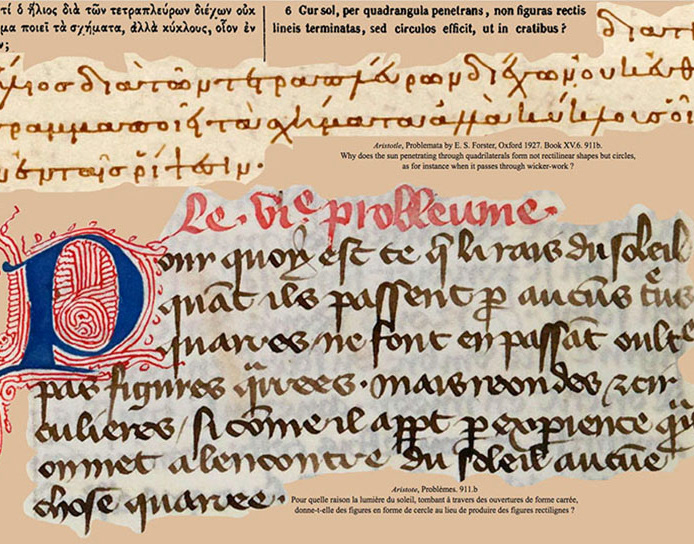 τί ὁ ἥλιος διὰ τῶν τετραπλεύρων διέχων οὐκ
μα ποιεῖ τὰ σχήματα, ἀλλὰ κύκλους, οἷον ἐν
ν;
6 Cur sol, per quadrangula penetrans, non figuras rectis
lineis terminatas, sed circulos efficit, ut in cratibus?
διατί
ήλιος διατωντετραπλεύρωνδιέχωνουκευθ
γραμμαποιεῖτασχήματααλλακύκλουσοἷ
ενταισριψεσιν·
Aristotle, Problemata by E. S. Forster, Oxford 1927. Book XV.6. 911b.
Why does the sun penetrating through quadrilaterals form not rectilinear shapes but circles,
as for instance when it passes through wicker-work ?
Le .vie. probleume.
Pour quoy est ce q̃ li rais du soleil
quāt ils passent ꝑ aucūs
quarres ne font en passāt oult
pas figures q̃rrees . mais reondes & cir
culieres / si cōme il appt ꝑ experience
on met alencontre du soleil aucūe
chose quarree .
Aristote, Problèmes. 911.b
Pour quelle raison la lumière du soleil, tombant à travers des ouvertures de forme carrée,
donne-t-elle des figures en forme de cercle au lieu de produire des figures rectilignes ?